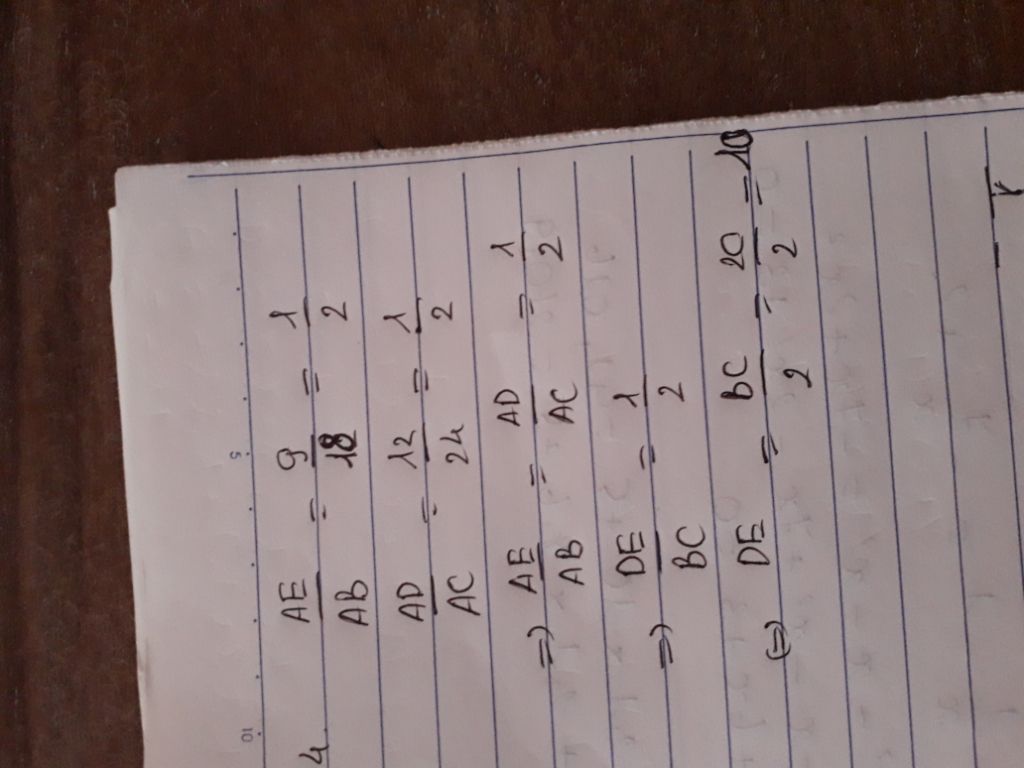 4.
AE/AB = 9/18 = 1/2
AD/AC = 12/24 = 1/2
=) AE/AB = AD/AC = 1/2
=) DE/BC = 1/2
(=) DE = BC/2 = 20/2 = 10
5
10